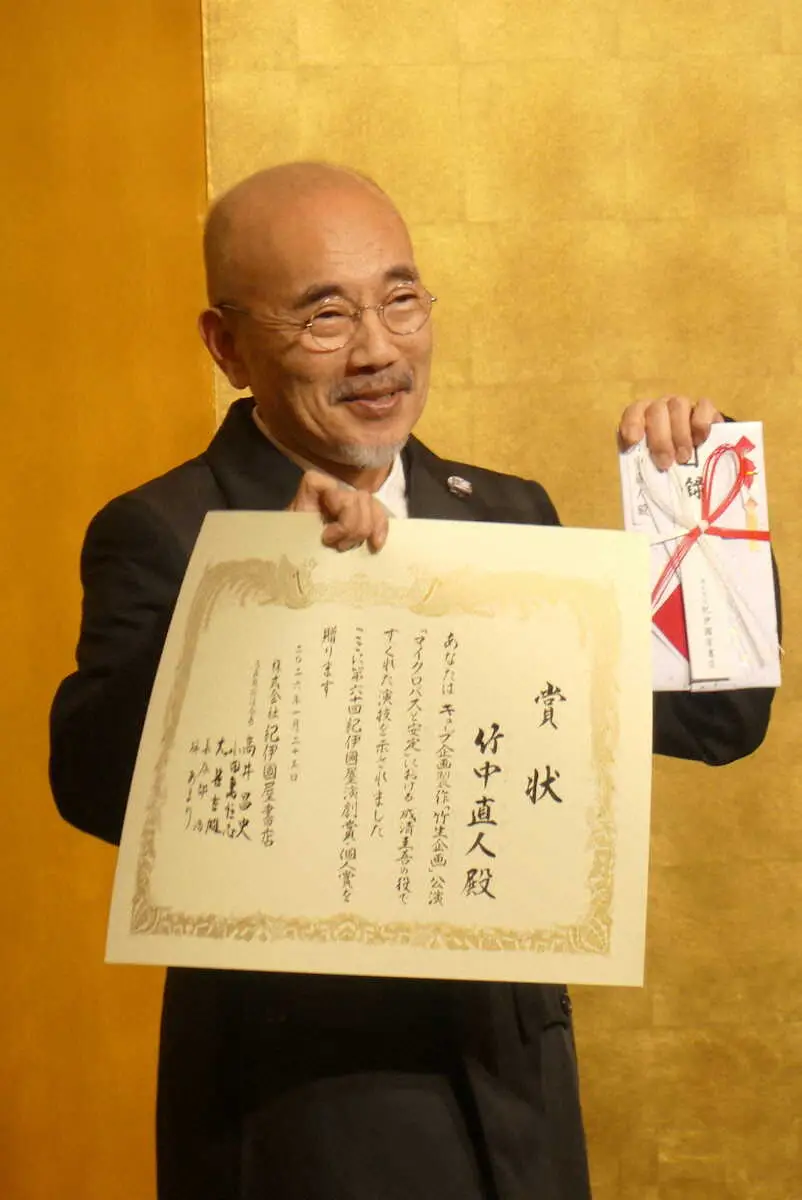 賞状
竹中直人殿
あなたは キューブ企画製作「竹生企画」公演
「マイクロバスと安定」における 成清圭吾の役で
すぐれた演技を示されました
ここに第六十回紀伊國屋演劇賞・個人賞を
贈ります
二〇二六年一月二十三日
株式会社 紀伊國屋書店
高井昌史
目録
紀伊國屋書店